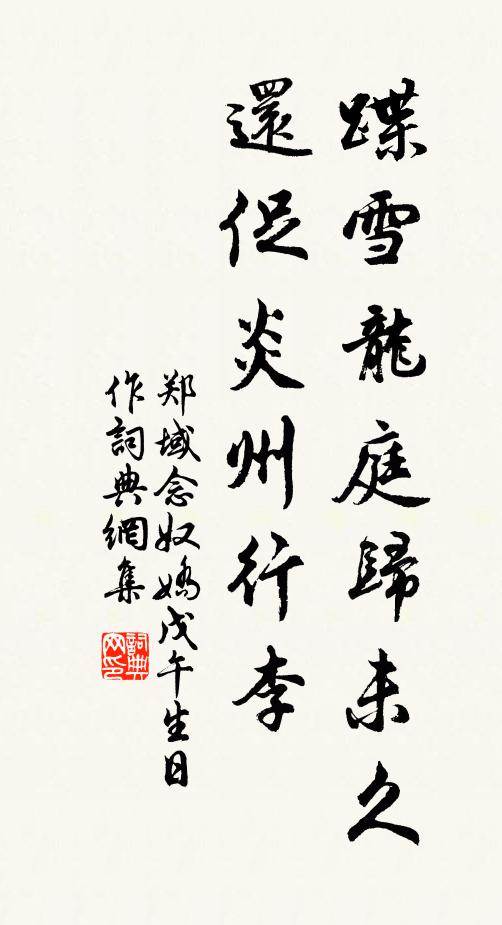 蹀雪龍庭歸未久
還促炎州行李
郑域念奴嬌戊午生日
作詞典網集
詞典网印